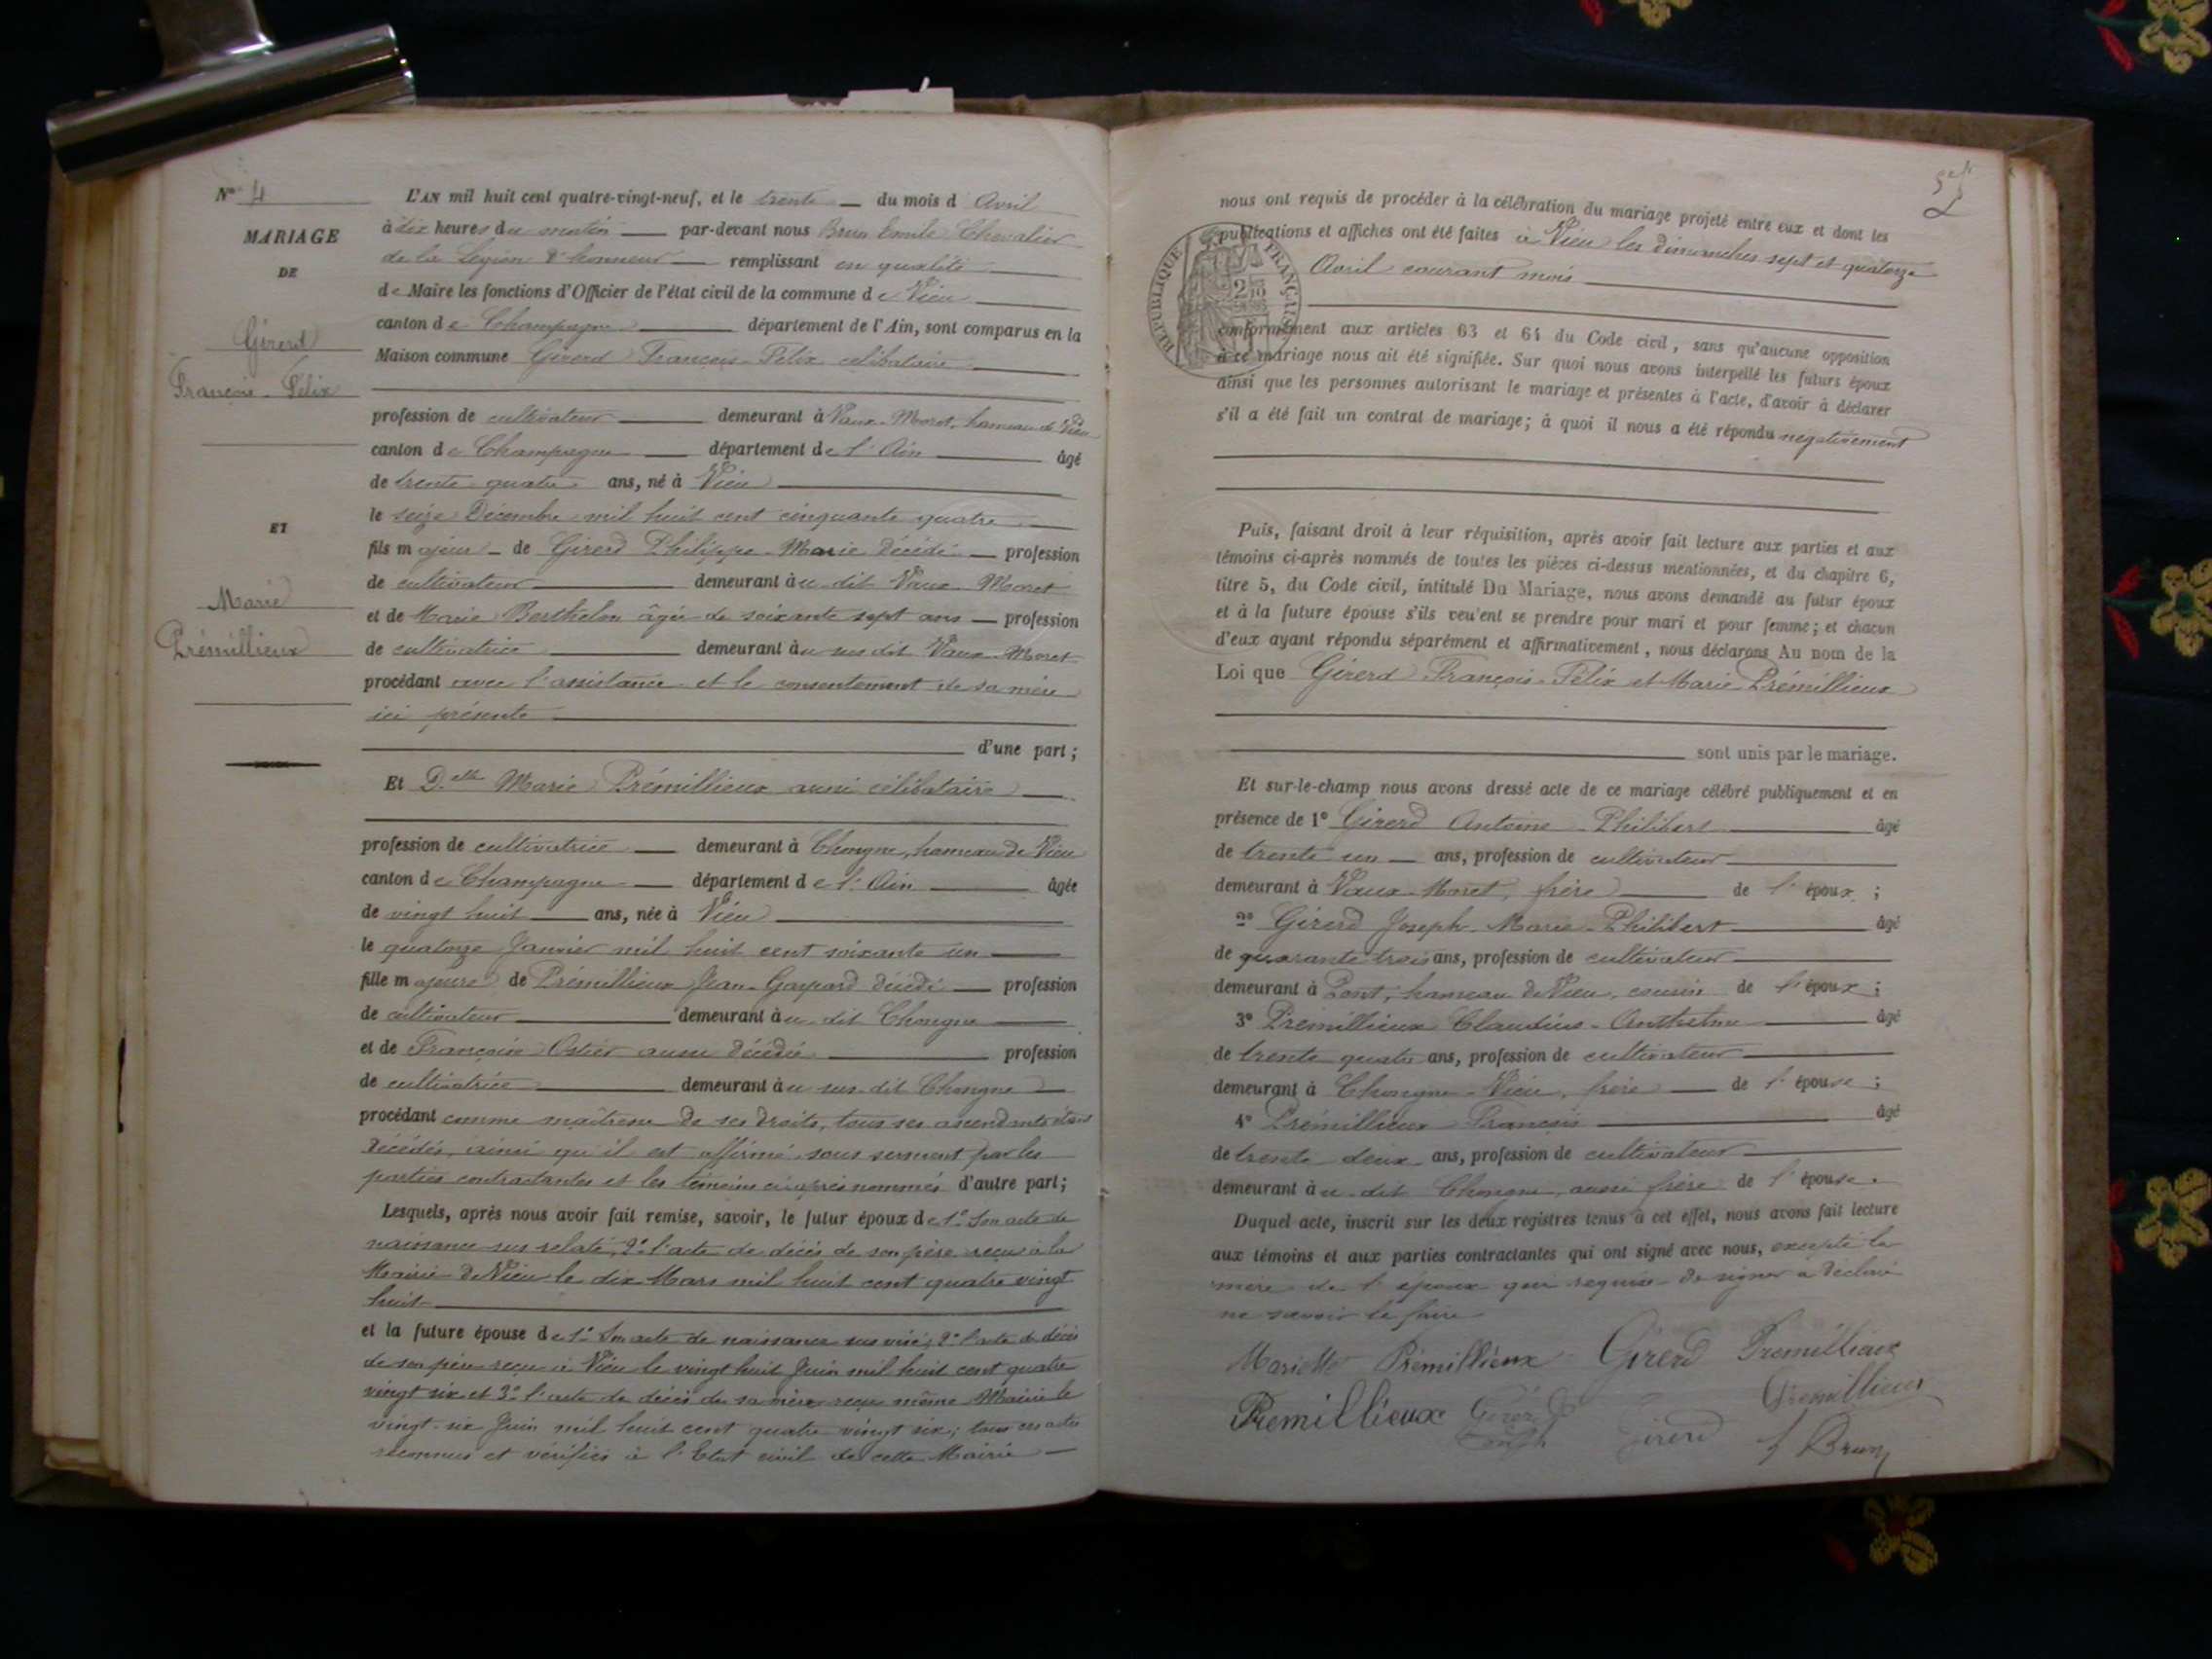 Nº 4
MARIAGE
DE
Girerd
François-Félix
ET
Marie
Prémillieux
L'AN mil huit cent quatre-vingt-neuf, et le trente du mois d'Avril
à dix heures du matin par-devant nous Brun Emile Chevalier
de la Légion d'honneur remplissant en qualité
de Maire les fonctions d'Officier de l'état civil de la commune de Vieu
canton de Champagne département de l'Ain, sont comparus en la
Maison commune Girerd François-Félix célibataire
profession de cultivateur demeurant à Vaux-Moret, hameau de Vieu
canton de Champagne département de l'Ain âgé
de trente quatre ans, né à Vieu
le seize Décembre mil huit cent cinquante quatre
fils majeur de Girerd Philippe-Marie décédé profession
de cultivateur demeurant au dit Vaux-Moret
et de Marie Berthelon âgée de soixante sept ans profession
de cultivatrice demeurant au sus dit Vaux-Moret
procédant avec l'assistance et le consentement de sa mère
ici présente
d'une part;
Et Delle Marie Prémillieux aussi célibataire
profession de cultivatrice demeurant à Chongne, hameau de Vieu
canton de Champagne département de l'Ain âgée
de vingt huit ans, née à Vieu
le quatorze Janvier mil huit cent soixante un
fille majeure de Prémillieux Jean-Gaspard décédé profession
de cultivateur demeurant au dit Chongne
et de Françoise Ostier aussi décédée profession
de cultivatrice demeurant au sus-dit Chongne
procédant comme maîtresse de ses droits, tous ses ascendants étant
décédés, ainsi qu'il est affirmé sous serment par les
parties contractantes et les témoins ci-après nommés d'autre part;
Lesquels, après nous avoir fait remise, savoir, le futur époux de 1º Son acte de
naissance sus relaté, 2º l'acte de décès de son père reçu à la
Mairie de Vieu le dix Mars mil huit cent quatre vingt
huit
et la future épouse de 1º Son acte de naissance sus visé, 2º l'acte de décès
de son père reçu à Vieu le vingt huit Juin mil huit cent quatre
vingt six et 3º l'acte de décès de sa mère reçu même Mairie le
vingt-six Juin mil huit cent quatre vingt six; tous ces actes
reconnus et vérifiés à l'Etat civil de cette Mairie
nous ont requis de procéder à la célébration du mariage projeté entre eux et dont les
publications et affiches ont été faites à Vieu les dimanches sept et quatorze
Avril courant mois
RÉPUBLIQUE FRANÇAISE
conformément aux articles 63 et 64 du Code civil, sans qu'aucune opposition
à ce mariage nous ait été signifiée. Sur quoi nous avons interpellé les futurs époux
ainsi que les personnes autorisant le mariage et présentes à l'acte, d'avoir à déclarer
s'il a été fait un contrat de mariage; à quoi il nous a été répondu négativement
Puis, faisant droit à leur réquisition, après avoir fait lecture aux parties et aux
témoins ci-après nommés de toutes les pièces ci-dessus mentionnées, et du chapitre 6,
titre 5, du Code civil, intitulé Du Mariage, nous avons demandé au futur époux
et à la future épouse s'ils veulent se prendre pour mari et pour femme; et chacun
d'eux ayant répondu séparément et affirmativement, nous déclarons Au nom de la
Loi que Girerd François-Félix et Marie Prémillieux
sont unis par le mariage.
Et sur-le-champ nous avons dressé acte de ce mariage célébré publiquement et en
présence de 1º Girerd Antoine-Philibert âgé
de trente un ans, profession de cultivateur
demeurant à Vaux-Moret, frère de l'époux;
2º Girerd Joseph-Marie-Philibert âgé
de quarante trois ans, profession de cultivateur
demeurant à Pont, hameau de Vieu, cousin de l'époux;
3º Prémillieux Claudius-Anthelme âgé
de trente quatre ans, profession de cultivateur
demeurant à Chongne-Vieu, frère de l'épouse;
4º Prémillieux François âgé
de trente deux ans, profession de cultivateur
demeurant au dit Chongne, aussi frère de l'épouse.
Duquel acte, inscrit sur les deux registres tenus à cet effet, nous avons fait lecture
aux témoins et aux parties contractantes qui ont signé avec nous, excepté la
mère de l'époux qui requise de signer a déclaré
ne savoir le faire
Mariette Prémillieux Girerd Premillieux
Premillieux Girerd Joseph Girerd Premillieux
Brun